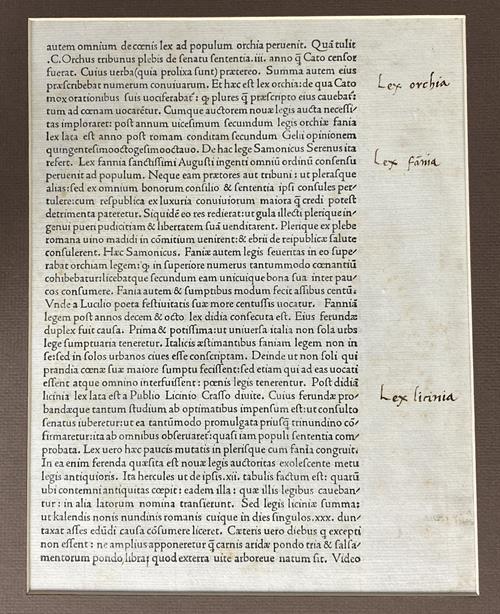 autem omnium de cœnis lex ad populum orchia peruenit. Quā tulit
.C. Orchus tribunus plebis de senatu sententia .iii. anno q̄ Cato censor
fuerat. Cuius uerba (quia prolixa sunt) prætereo. Summa autem eius
præscribebat numerum conuiuarum. Et hæc est lex orchia: de qua Cato
mox orationibus suis uociferabat᷑: ꝙ plures q̄ præscripto eius cauebat᷑:
tum ad cœnam uocarētur. Cumque auctorem nouæ legis aucta necessi/
tas imploraret: post annum uicesimum secundum legis orchiæ fania
lex lata est anno post romam conditam secundum Gelii opinionem
quingentesimooctogesimooctauo. De hac lege Samonicus Serenus ita
refert. Lex fannia sanctissimi Augusti ingenti omniū ordinū consensu
peruenit ad populum. Neque eam prætores aut tribuni: ut plerasque
alias: sed ex omnium bonorum consilio & sententia ipsi consules per/
tulere: cum respublica ex luxuria conuiuiorum maiora q̄ credi potest
detrimenta pateretur. Siquidē eo res redierat: ut gula illecti plerique in/
genui pueri pudicitiam & libertatem suā uenditarent. Plerique ex plebe
romana uino madidi in cōmitium uenirent: & ebrii de reipublicæ salute
consulerent. Hæc Samonicus. Faniæ autem legis seueritas in eo supe/
rabat orchiam legem: ꝙ in superiore numerus tantummodo cœnantiū
cohibebatur: licebatque secundum eam unicuique bona sua inter pau/
cos consumere. Fania autem & sumptibus modum fecit assibus centū.
Vnde a Lucilio poeta festiuitatis suæ more centussis uocatur. Fanniā
legem post annos decem & octo lex didia consecuta est. Eius ferundæ
duplex fuit causa. Prima & potissima: ut uniuersa italia non sola urbs
lege sumptuaria teneretur. Italicis æstimantibus faniam legem non in
se: sed in solos urbanos ciues esse conscriptam. Deinde ut non soli qui
prandia cœnæ suæ maiore sumptu fecissent: sed etiam qui ad eas uocati
essent atque omnino interfuissent: pœnis legis tenerentur. Post didiā
licinia lex lata est a Publio Licinio Crasso diuite. Cuius ferundæ pro/
bandæque tantum studium ab optimatibus impensum est: ut consulto
senatus iuberetur: ut ea tantūmodo promulgata priusq̄ trinundino cō/
firmaretur: ita ab omnibus obseruaret᷑: quasi iam populi sententia com/
probata. Lex uero hæc paucis mutatis in plerisque cum fania congruit.
In ea enim ferenda quæsita est nouæ legis auctoritas exolescente metu
legis antiquioris. Ita hercules ut de ipsis .xii. tabulis factum est: quarū
ubi contemni antiquitas cœpit: eadem illa: quæ illis legibus caueban/
tur: in alia latorum nomina transierunt. Sed legis liciniæ summa:
ut kalendis nonis nundinis romanis cuique in dies singulos .xxx. dun/
taxat asses edūdi causa cōsumere liceret. Cæteris uero diebus q̄ excepti
non essent: ne amplius apponeretur q̄ carnis aridæ pondo tria & salsa/
mentorum pondo, libra: quod ex terra uite arboreue natum sit. Video
Lex orchia
Lex fānia
Lex licinia